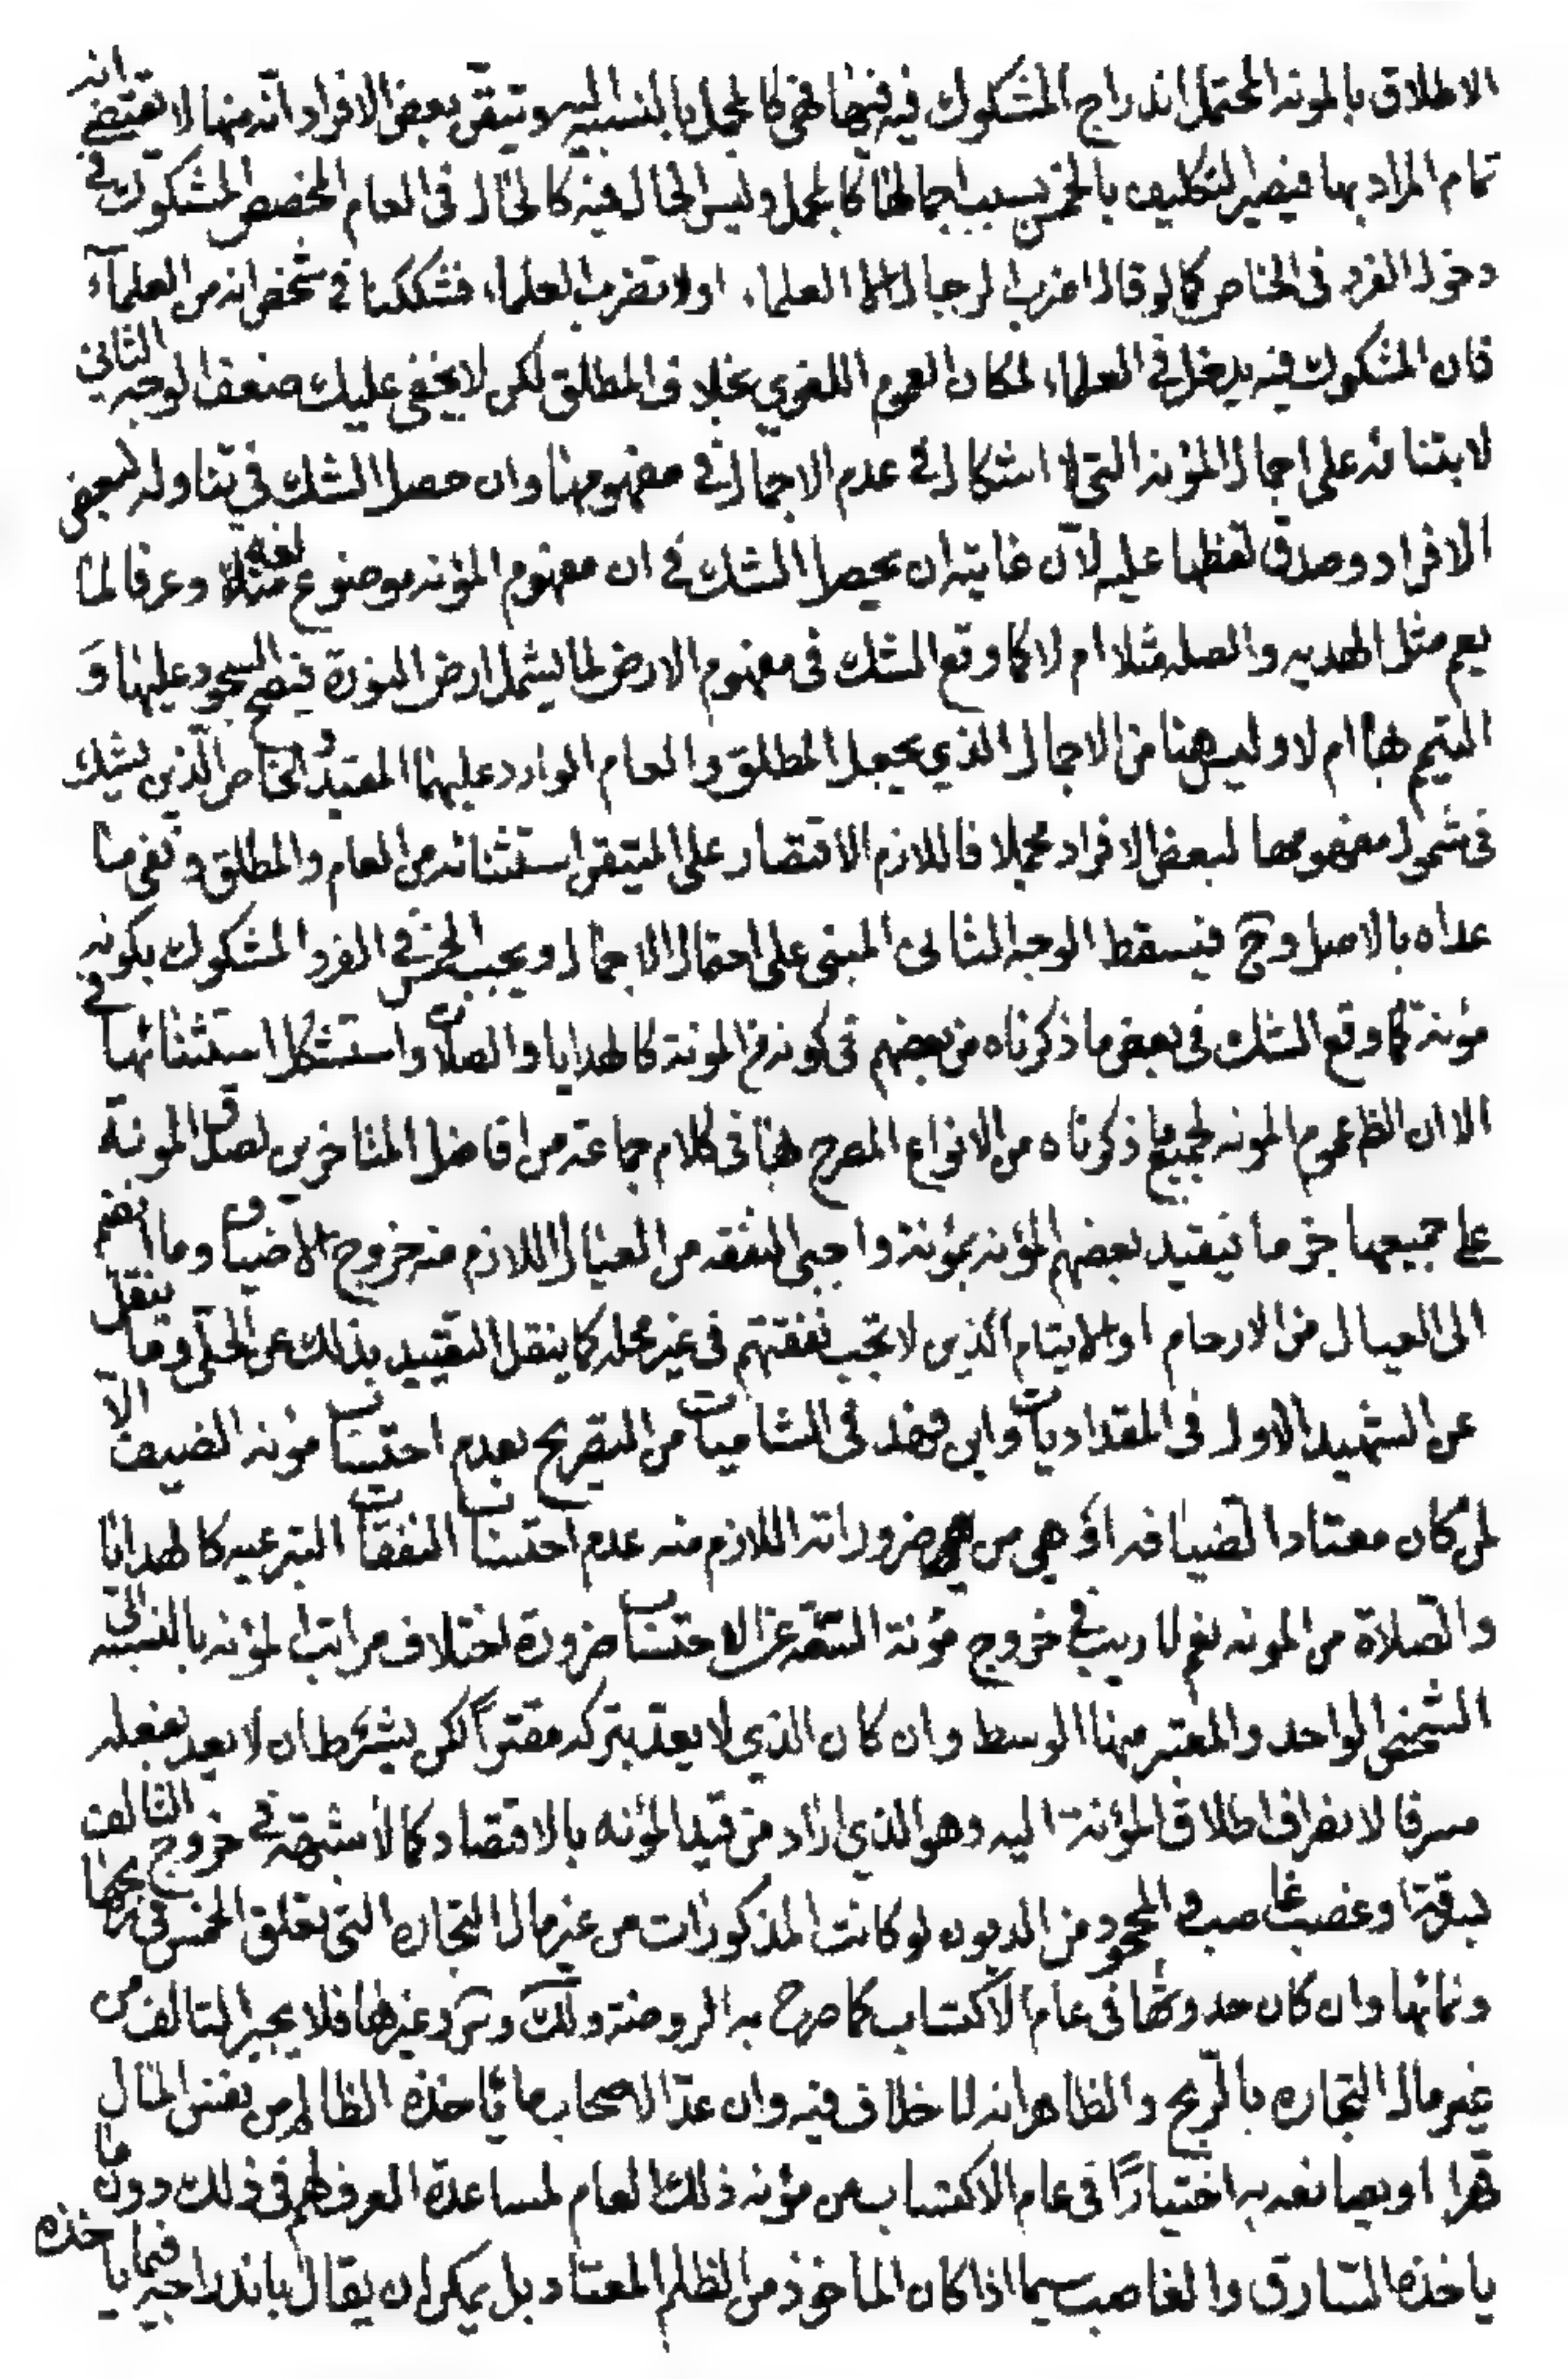 الاطلاق بالمونه المحتمل اندراج المشكوك فيه فيها فهى كالمجمل بالنسبة اليه وتيقن بعض الافراد انه منها لا يقتضى انه
تمام المراد بها فيصير التكليف بالخمس بسبب اجمالها كالمجمل وليس الحال فيه كالحال فى العام المخصص المشكوك فى
دخول الفرد فى الخاص كما لو قال اضرب الرجال الا العلماء او لا تضرب العلماء فشككنا فى شخص انه من العلماء
فان المشكوك فيه يدخل فى العلماء لمكان العموم اللغوي بخلاف المطلق لكن لا يخفى عليك ضعف الوجه الثاني
لابتنائه على اجمال المؤنه التى لا اشكال فى عدم الاجمال فى مفهومها وان حصل الشك فى تناوله لبعض
الافراد وصدق لفظها عليه لان غايته ان يحصل الشك فى ان مفهوم المؤنه موضوع لغة وعرفا لما
يعم مثل الهديه والصله مثلا ام لا كما وقع الشك فى مفهوم الارض لما يشمل ارض النورة فيصح السجود عليها و
التيمم بها ام لا وليس هنا من الاجمال الذي يجعل المطلق والعام الوارد عليهما المقيد والخاص الذي يشك
فى شمول مفهومها لبعض الافراد مجملا فاللازم الاقتصار على المتيقن استثنائه من العام والمطلق ونفى ما
عداه بالاصل وح فيسقط الوجه الثانى المبنى على احتمال الاجمال ويجب الخمس فى الفرد المشكوك بكونه
مؤنة كما وقع الشك فى بعض ما ذكرناه من بعضهم فى كونه من المونة كالهدايا والصلات واستشكل استثنائها فى
الا ان الظ عموم المونه لجميع ما ذكرناه من الانواع المصرح بها فى كلام جماعة من افاضل المتاخرين لصدق المونة
على جميعها جزما فيقيد بعضهم المؤنه بمؤنة واجبى النفقه من العيال اللازم منه خروج الاضياف وما انضم
الى العيال من الارحام او الايتام الذين لا تجب نفقتهم فى غير محله كما ينقل التقييد بذلك عن الحلى وما ينقل
عن الشهيد الاول فى المقداديات وابن فهد فى الشاميات من التصريح بعدم احتساب مؤنه الضيف الا
لمن كان معتادا لضيافه او هى من ضروراته اللازم منه عدم احتساب النفقات التبرعيه كالهدايا
والصلاة من المونه نعم لا ريب فى خروج مؤنة السفه عن الاحتساب ضرورة اختلاف مراتب المؤنه بالنسبه الى
الشخص الواحد والمعتبر منها الوسط وان كان الذي لا يعد بتركه مقترا لكن يشترط ان لا يعد بفعله
مسرفا لانصراف اطلاق المؤنة اليه وهو الذي اراد من قيد المؤنه بالاقتصاد كما لا شبهة فى خروج التالف
بسرقة او غصب غاصب والمجحود من الديون لو كانت المذكورات من غير مال التجاره التى تعلق الخمس فى ربحها
ونمائها وان كان حدوثها فى عام الاكتساب كما صرح به الروضة ولك وس وغيرها فلا يجبر التالف من
غير مال التجاره بالربح والظاهر انه لا خلاف فيه وان عد الاصحاب ما يأخذه الظالم من نفس المال
قهرا او يصانعه به اختيارا فى عام الاكتساب من مؤنه ذلك العام لمساعدة العرف لهم فى ذلك دون ما
ياخذه السارق والغاصب سيما اذا كان الماخوذ من الظلم المعتاد بل يمكن ان يقال باندراجه فيما ياخذه